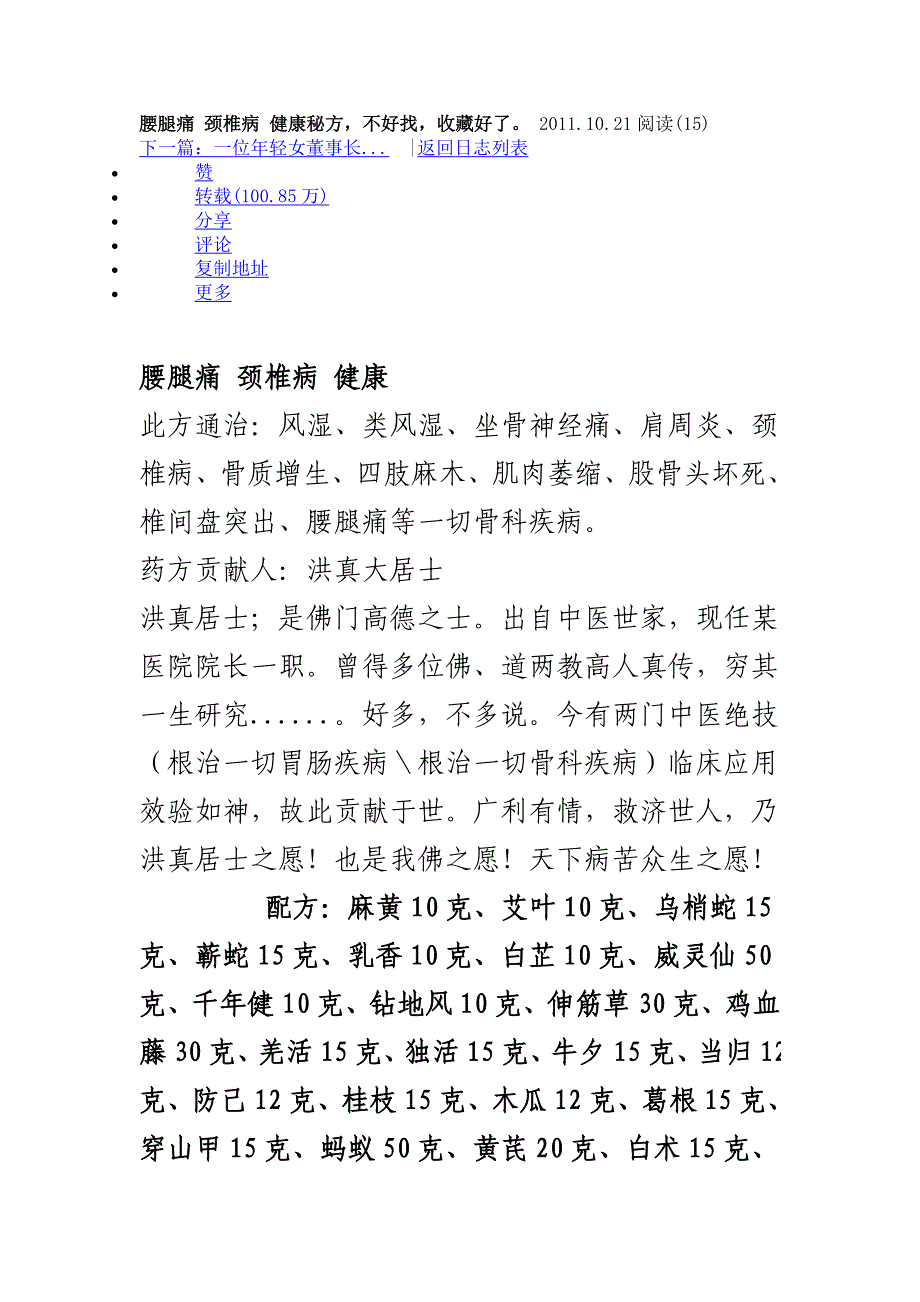 腰腿痛 颈椎病 健康秘方，不好找，收藏好了。 2011.10.21阅读(15)
下一篇：一位年轻女董事长... |返回日志列表
• 赞
• 转载(100.85万)
• 分享
• 评论
• 复制地址
• 更多
腰腿痛 颈椎病 健康
此方通治：风湿、类风湿、坐骨神经痛、肩周炎、颈
椎病、骨质增生、四肢麻木、肌肉萎缩、股骨头坏死、
椎间盘突出、腰腿痛等一切骨科疾病。
药方贡献人：洪真大居士
洪真居士；是佛门高德之士。出自中医世家，现任某
医院院长一职。曾得多位佛、道两教高人真传，穷其
一生研究......。好多，不多说。今有两门中医绝技
（根治一切胃肠疾病＼根治一切骨科疾病）临床应用
效验如神，故此贡献于世。广利有情，救济世人，乃
洪真居士之愿！也是我佛之愿！天下病苦众生之愿！
配方：麻黄10克、艾叶10克、乌梢蛇15
克、蕲蛇15克、乳香10克、白芷10克、威灵仙50
克、千年健10克、钻地风10克、伸筋草30克、鸡血
藤30克、羌活15克、独活15克、牛夕15克、当归12
克、防己12克、桂枝15克、木瓜12克、葛根15克、
穿山甲15克、蚂蚁50克、黄芪20克、白术15克、